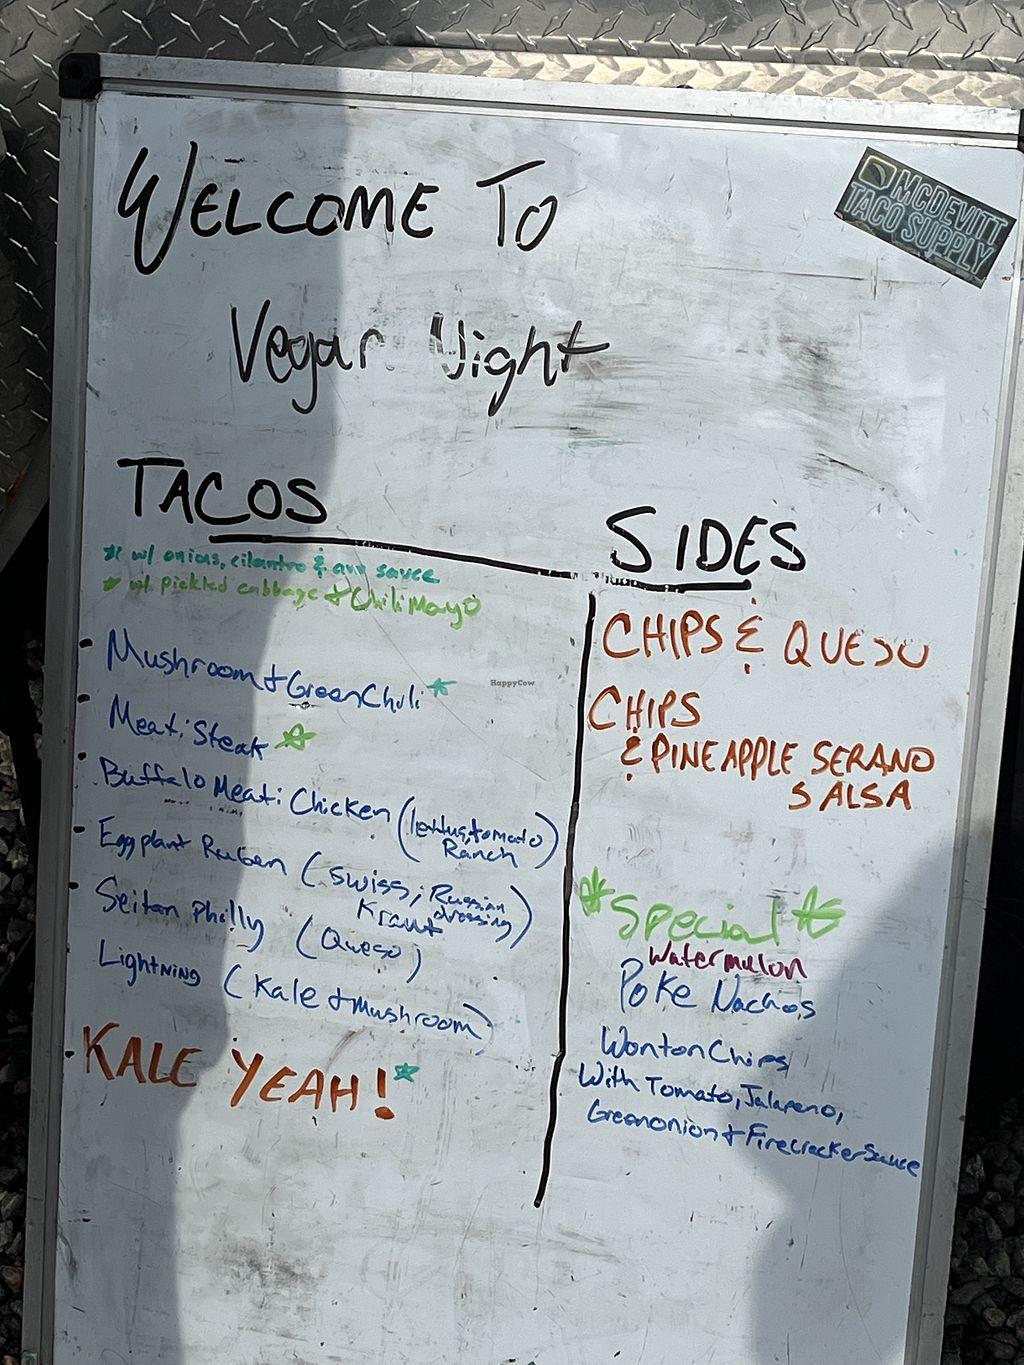 WELCOME TO
MCDEVITT
TACO SUPPLY
Vegan Night
TACOS
* w/ onions, cilantro & avo sauce
* w/ pickled cabbage & Chili Mayo
- Mushroom & Green Chili *
- Meati Steak *
- Buffalo Meati Chicken (lettus, tomato
Ranch)
- Eggplant Ruben (swiss, Russian
Kraut dressing)
- Seitan Philly (Queso)
Lightning (Kale & mushroom)
- KALE YEAH! *
SIDES
CHIPS & QUESO
CHIPS
& PINEAPPLE SERANO
SALSA
*Special*
Watermelon
Poke Nachos
Wonton Chips
With Tomato, Jalapeno,
Greenonion & Firecracker Sauce
HappyCow